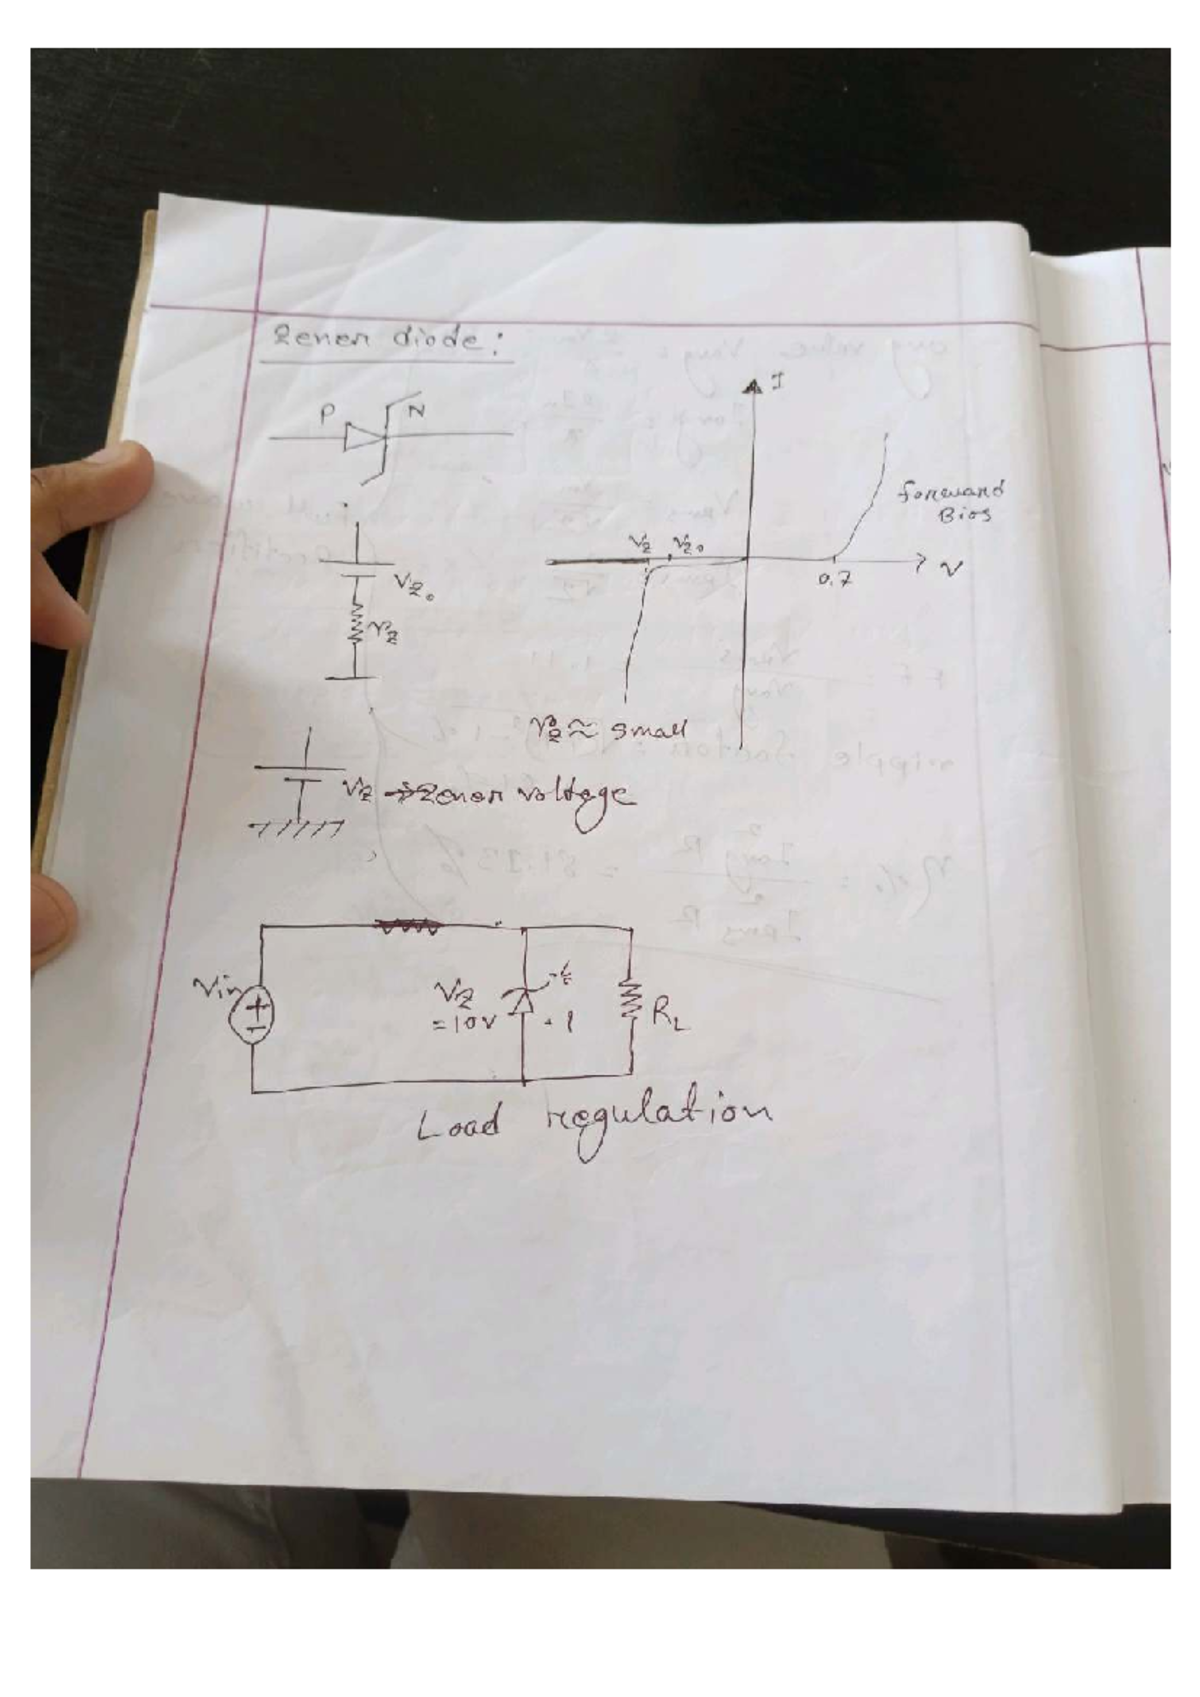 Zener diode:
P N
I
Forward
Bias
Vz Vz₀
0.7 V
Vz₀
rz
rz ≈ small
Vz → Zener voltage
Vin
Vz
= 10V
RL
Load regulation